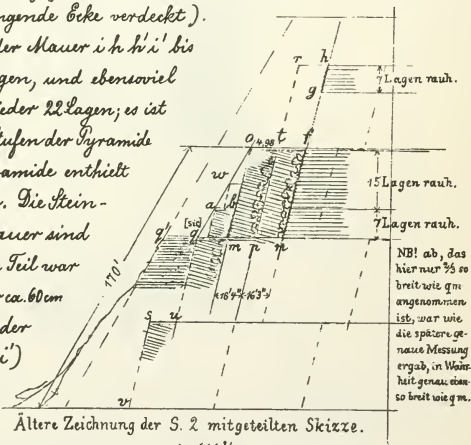 ngende Ecke verdeckt).
der Mauer i h h' i' bis
gen, und ebensoviel
eder 22 Lagen; es ist
tufen der Pyramide
amide enthielt
. Die Stein-
auer sind
Teil war
ca. 60 cm
der
i')
r h
g
7 Lagen rauh.
o 4,98 t f
w
15 Lagen rauh.
a i b
[sic]
q' q m p n
7 Lagen rauh.
170'
16'4" 16'3"
s u
v
NB! ab, das
hier nur 2/3 so
breit wie qm
angenommen
ist, war wie
die spätere ge-
naue Messung
ergab, in Wahr-
heit genau eben-
so breit wie qm.
Ältere Zeichnung der S. 2 mitgeteilten Skizze.